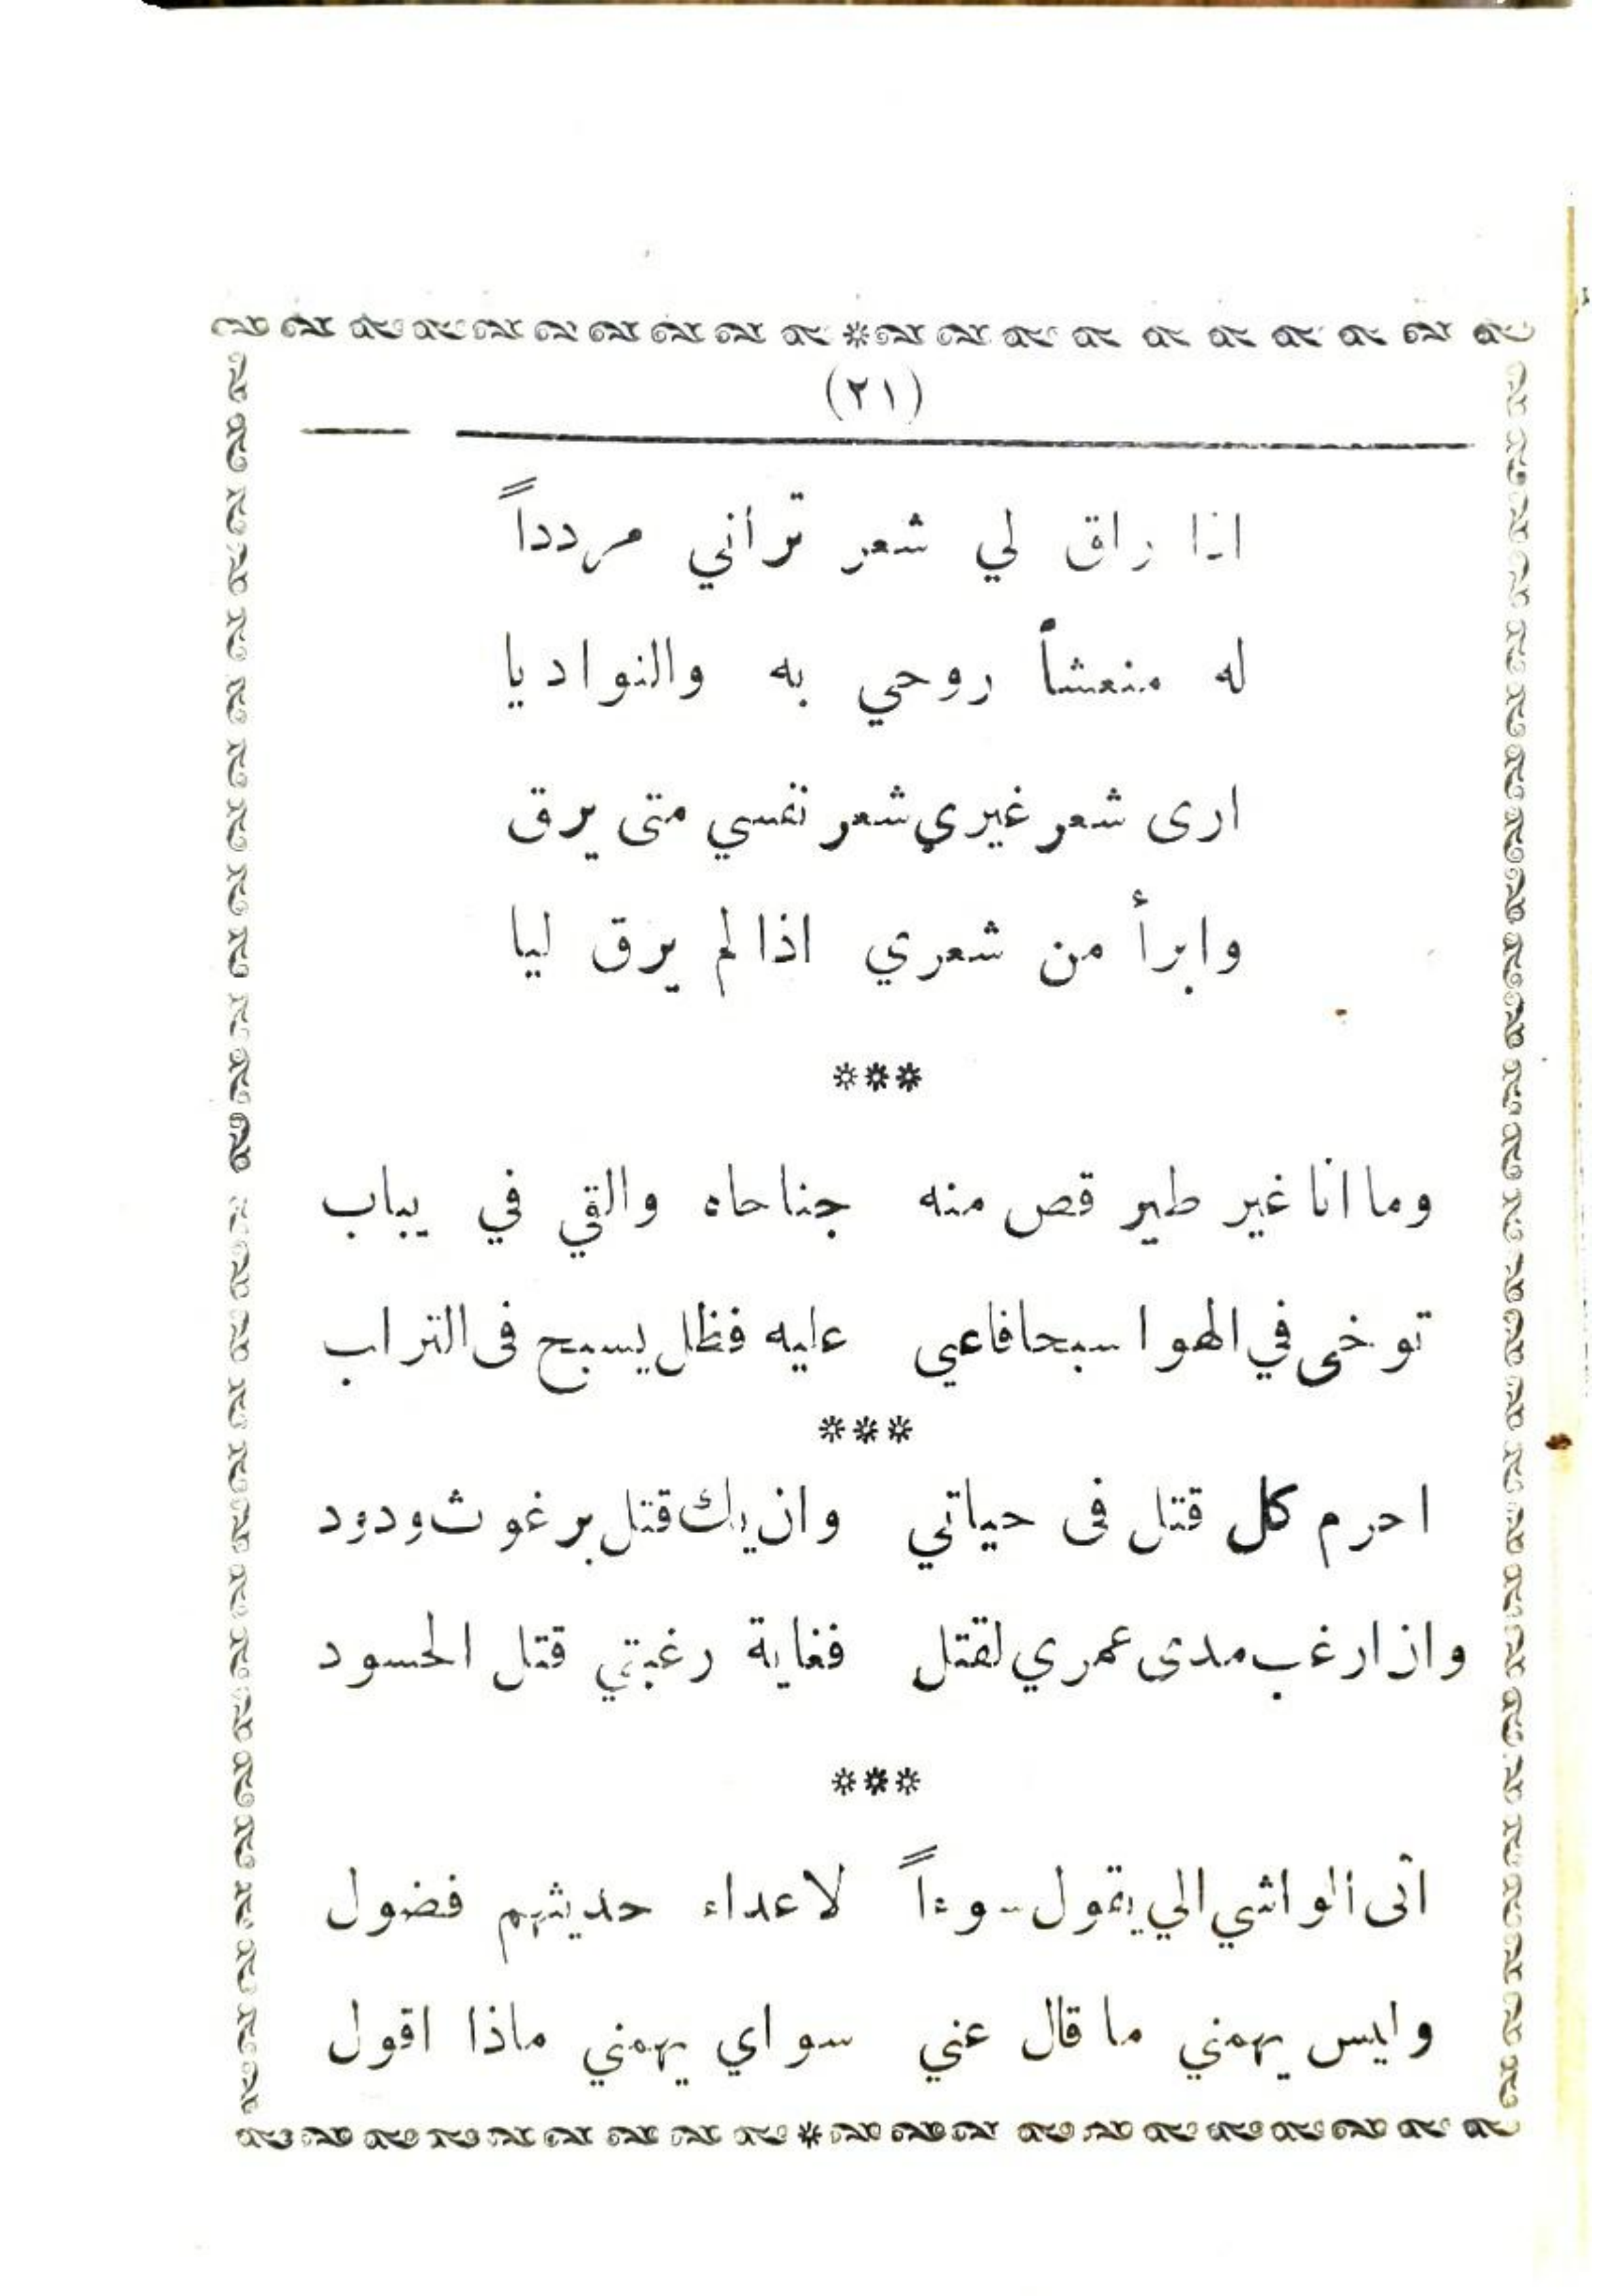 (٢١)
اذا راق لي شعر ترأني مردداً
له منعشاً روحي به والنواديا
ارى شعر غيري شعر نفسي متى يرق
وابرأ من شعري اذا لم يرق ليا
***
وما انا غير طير قص منه جناحاه والقي في يباب
توخى في الهوا سبحا فاعيي عليه فظل يسبح فى التراب
***
احرم كل قتل فى حياتي وان يك قتل برغوث ودود
وان ارغب مدى عمري لقتل فغاية رغبتي قتل الحسود
***
اتى الواشي الي يقول سوءاً لاعداء حديثهم فضول
وليس يهمني ما قال عني سواي يهمني ماذا اقول